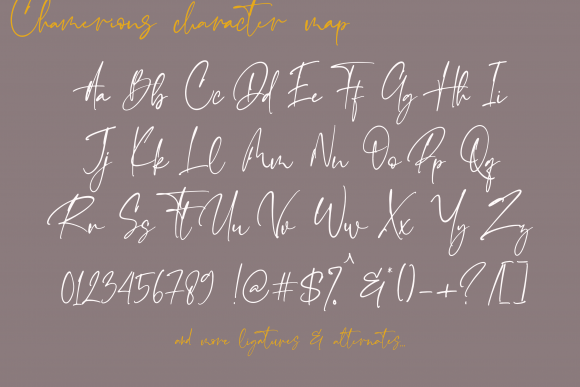 Chamerions character map
Aa Bb Cc Dd Ee Ff Gg Hh Ii
Jj Kk Ll Mm Nn Oo Pp Qq
Rr Ss Tt Uu Vv Ww Xx Yy Zz
0123456789 !@#$%^&*()-+?/[]
and more ligatures & alternates_